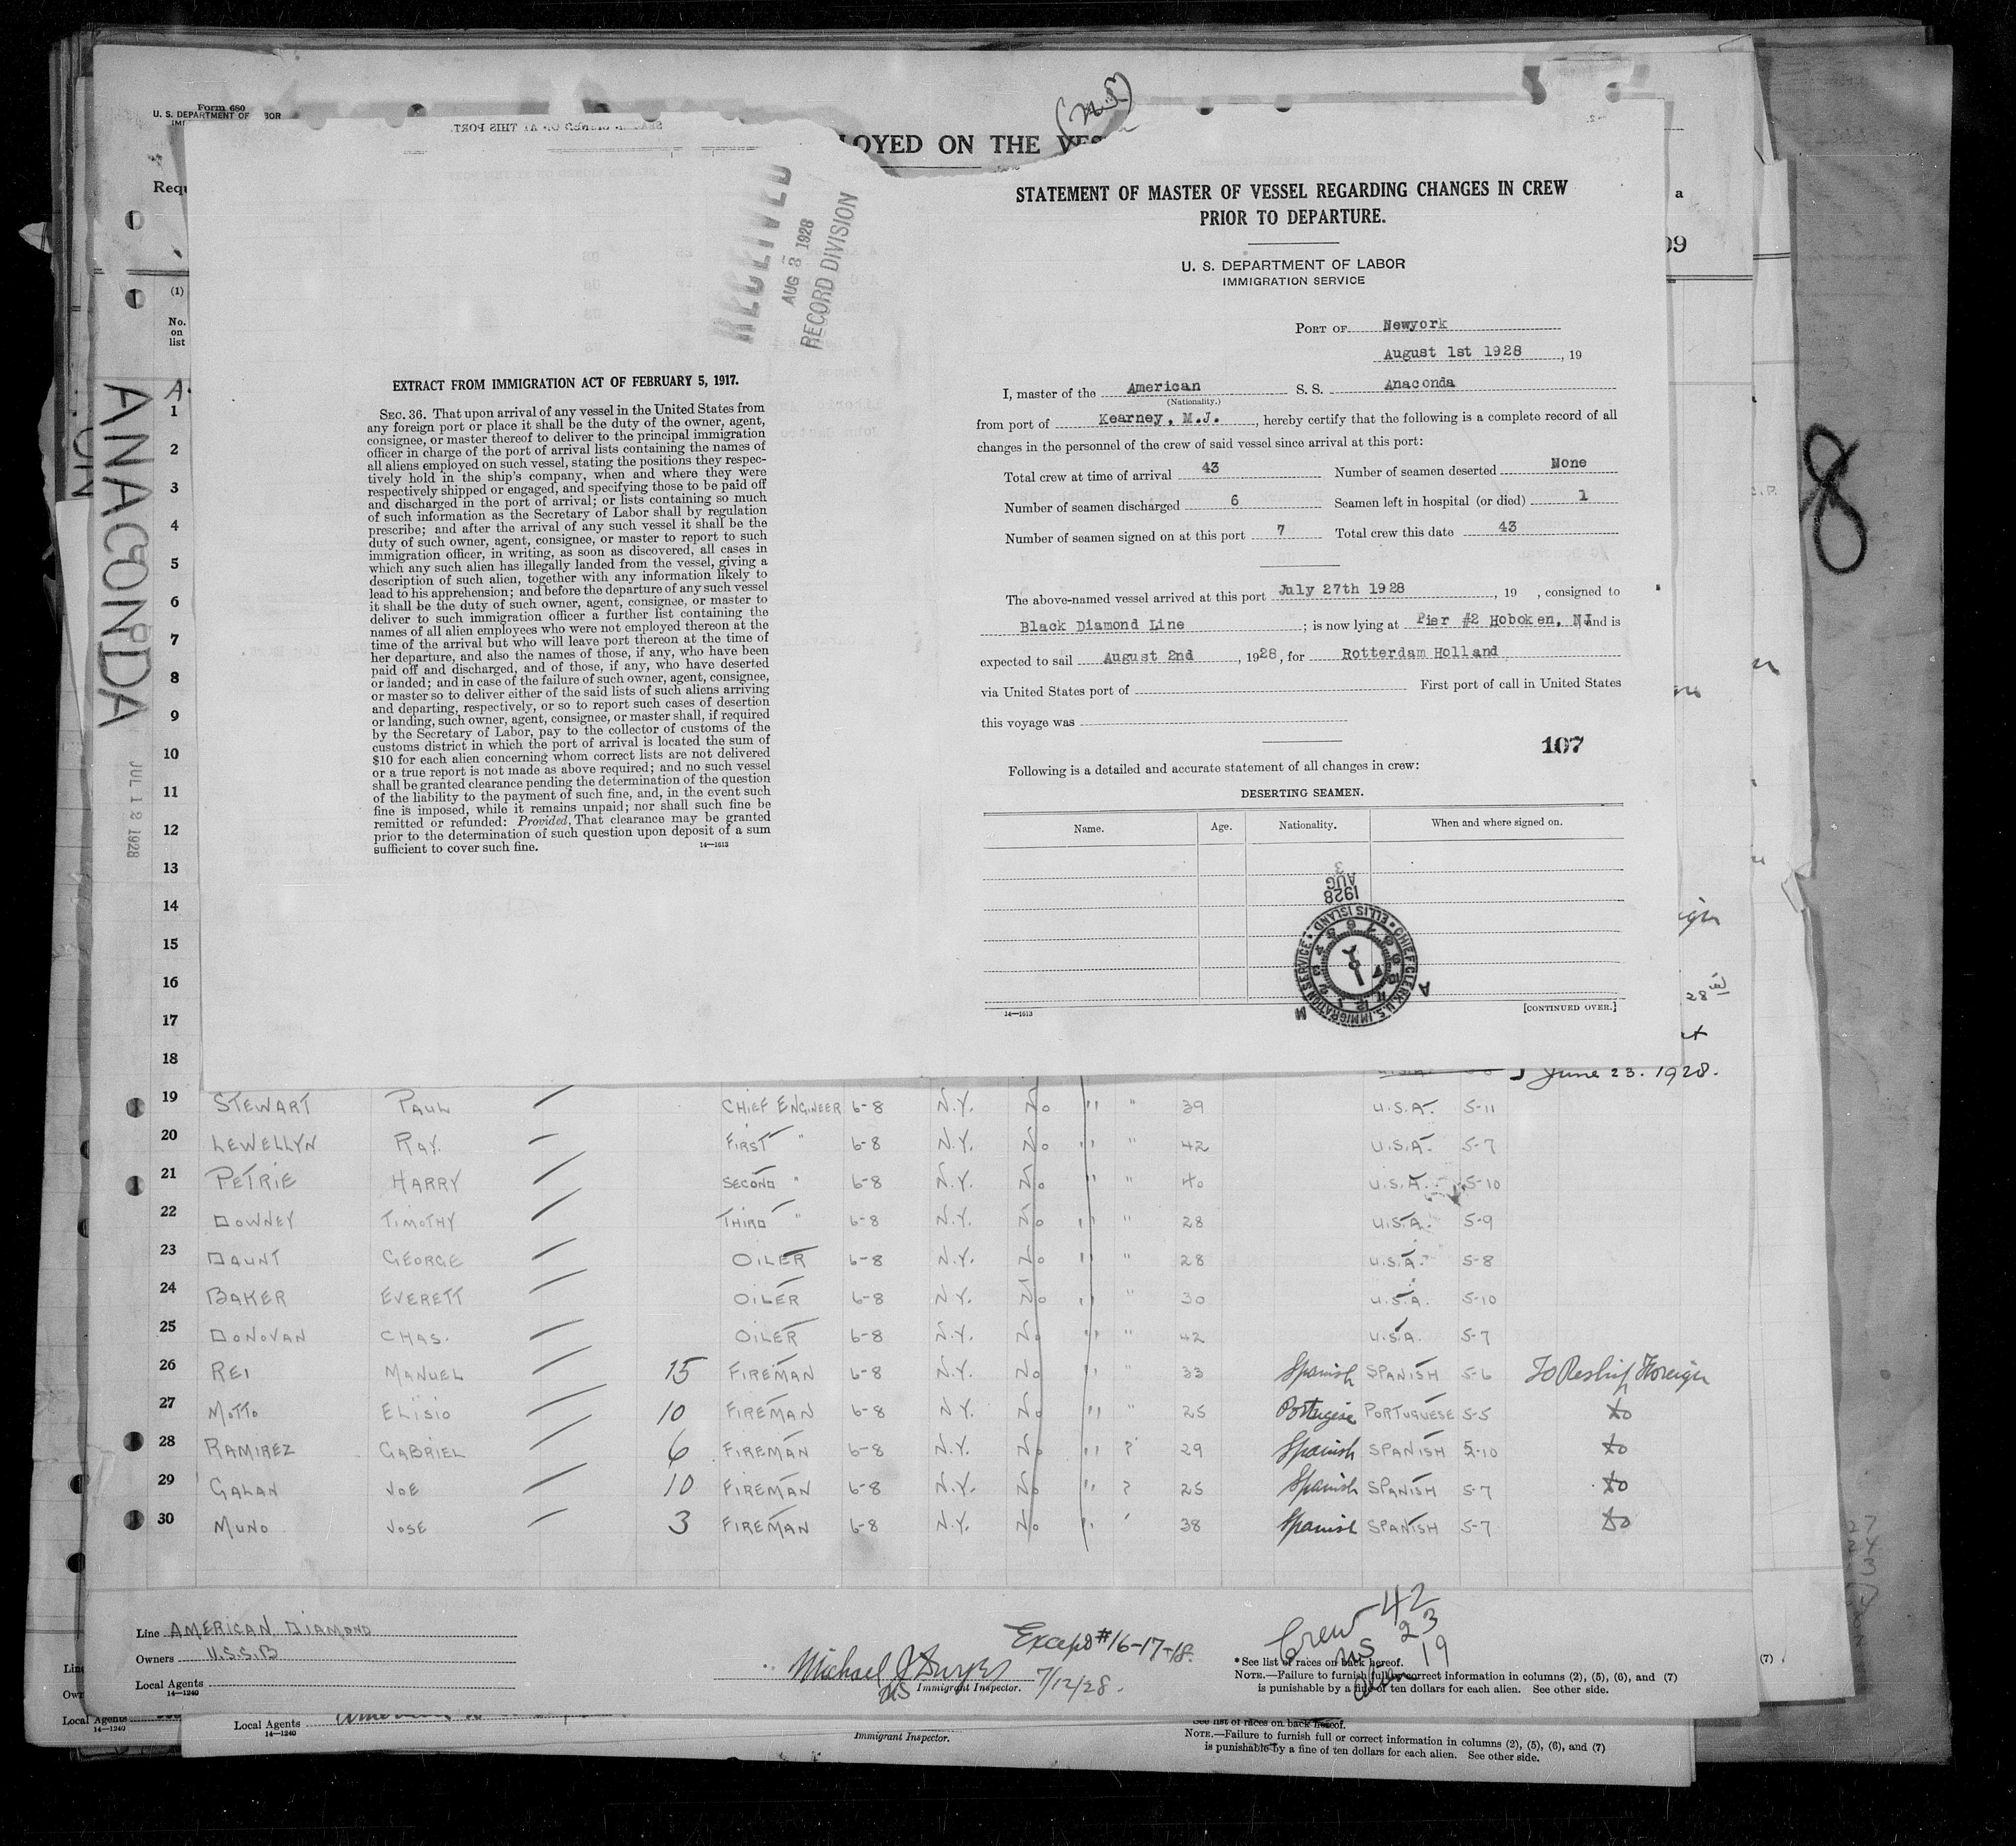 Form 680
U. S. DEPARTMENT OF
OYED ON THE VES
ANACONDA
JUL 12 1928
(1)
No.
on
list
RECEIVED
AUG 8 1928
RECORD DIVISION
EXTRACT FROM IMMIGRATION ACT OF FEBRUARY 5, 1917.
SEC. 36. That upon arrival of any vessel in the United States from
any foreign port or place it shall be the duty of the owner, agent,
consignee, or master thereof to deliver to the principal immigration
officer in charge of the port of arrival lists containing the names of
all aliens employed on such vessel, stating the positions they respec-
tively hold in the ship's company, when and where they were
respectively shipped or engaged, and specifying those to be paid off
and discharged in the port of arrival; or lists containing so much
of such information as the Secretary of Labor shall by regulation
prescribe; and after the arrival of any such vessel it shall be the
duty of such owner, agent, consignee, or master to report to such
immigration officer, in writing, as soon as discovered, all cases in
which any such alien has illegally landed from the vessel, giving a
description of such alien, together with any information likely to
lead to his apprehension; and before the departure of any such vessel
it shall be the duty of such owner, agent, consignee, or master to
deliver to such immigration officer a further list containing the
names of all alien employees who were not employed thereon at the
time of the arrival but who will leave port thereon at the time of
her departure, and also the names of those, if any, who have been
paid off and discharged, and of those, if any, who have deserted
or landed; and in case of the failure of such owner, agent, consignee,
or master so to deliver either of the said lists of such aliens arriving
and departing, respectively, or so to report such cases of desertion
or landing, such owner, agent, consignee, or master shall, if required
by the Secretary of Labor, pay to the collector of customs of the
customs district in which the port of arrival is located the sum of
$10 for each alien concerning whom correct lists are not delivered
or a true report is not made as above required; and no such vessel
shall be granted clearance pending the determination of the question
of the liability to the payment of such fine, and, in the event such
fine is imposed, while it remains unpaid; nor shall such fine be
remitted or refunded: Provided, That clearance may be granted
prior to the determination of such question upon deposit of a sum
sufficient to cover such fine.
14—1613
STATEMENT OF MASTER OF VESSEL REGARDING CHANGES IN CREW
PRIOR TO DEPARTURE.
U. S. DEPARTMENT OF LABOR
IMMIGRATION SERVICE
PORT OF Newyork
August 1st 1928, 19
I, master of the American S. S. Anaconda
(Nationality.)
from port of Kearney, M.J., hereby certify that the following is a complete record of all
changes in the personnel of the crew of said vessel since arrival at this port:
Total crew at time of arrival 43 Number of seamen deserted None
Number of seamen discharged 6 Seamen left in hospital (or died) 1
Number of seamen signed on at this port 7 Total crew this date 43
The above-named vessel arrived at this port July 27th 1928, 19 , consigned to
Black Diamond Line ; is now lying at Pier #2 Hoboken, NJ and is
expected to sail August 2nd, 1928, for Rotterdam Holland
via United States port of First port of call in United States
this voyage was
107
Following is a detailed and accurate statement of all changes in crew:
DESERTING SEAMEN.
Name. Age. Nationality. When and where signed on.
AUG 3 1928
CHIEF CLERK U.S. IMMIGRATION SERVICE ELLIS ISLAND
14—1613 [CONTINUED OVER.]
1
2
3
4
5
6
7
8
9
10
11
12
13
14
15
16
17
18
June 23. 1928.
19 STEWART PAUL CHIEF ENGINEER 6-8 N.Y. No " " 39 U.S.A. 5-11
20 LEWELLYN RAY. FIRST " 6-8 N.Y. No " " 42 U.S.A. 5-7
21 PETRIE HARRY SECOND " 6-8 N.Y. No " " 40 U.S.A. 5-10
22 DOWNEY TIMOTHY THIRD " 6-8 N.Y. No " " 28 U.S.A. 5-9
23 DAUNT GEORGE OILER 6-8 N.Y. No " " 28 U.S.A. 5-8
24 BAKER EVERETT OILER 6-8 N.Y. No " " 30 U.S.A. 5-10
25 DONOVAN CHAS. OILER 6-8 N.Y. No " " 42 U.S.A. 5-7
26 REI MANUEL 15 FIREMAN 6-8 N.Y. No " " 33 Spanish SPANISH 5-6 To Reship Foreign
27 MOTTO ELISIO 10 FIREMAN 6-8 N.Y. No " " 25 Portugese PORTUGUESE 5-5 do
28 RAMIREZ GABRIEL 6 FIREMAN 6-8 N.Y. No " " 29 Spanish SPANISH 5-10 do
29 GALAN JOE 10 FIREMAN 6-8 N.Y. No " " 25 Spanish SPANISH 5-7 do
30 MUNO JOSE 3 FIREMAN 6-8 N.Y. No " " 38 Spanish SPANISH 5-7 do
Line AMERICAN DIAMOND
Owners U.S.S.B
Local Agents
14—1240
Except #16-17-18.
Michael J 7/12/28.
Immigrant Inspector.
Crew 42
US 23
19
*See list of races on back hereof.
NOTE.—Failure to furnish full or correct information in columns (2), (5), (6), and (7)
is punishable by a fine of ten dollars for each alien. See other side.
Local Agents
14—1240
Local Agents
14—1240
Immigrant Inspector.
See list of races on back hereof.
NOTE.—Failure to furnish full or correct information in columns (2), (5), (6), and (7)
is punishable by a fine of ten dollars for each alien. See other side.